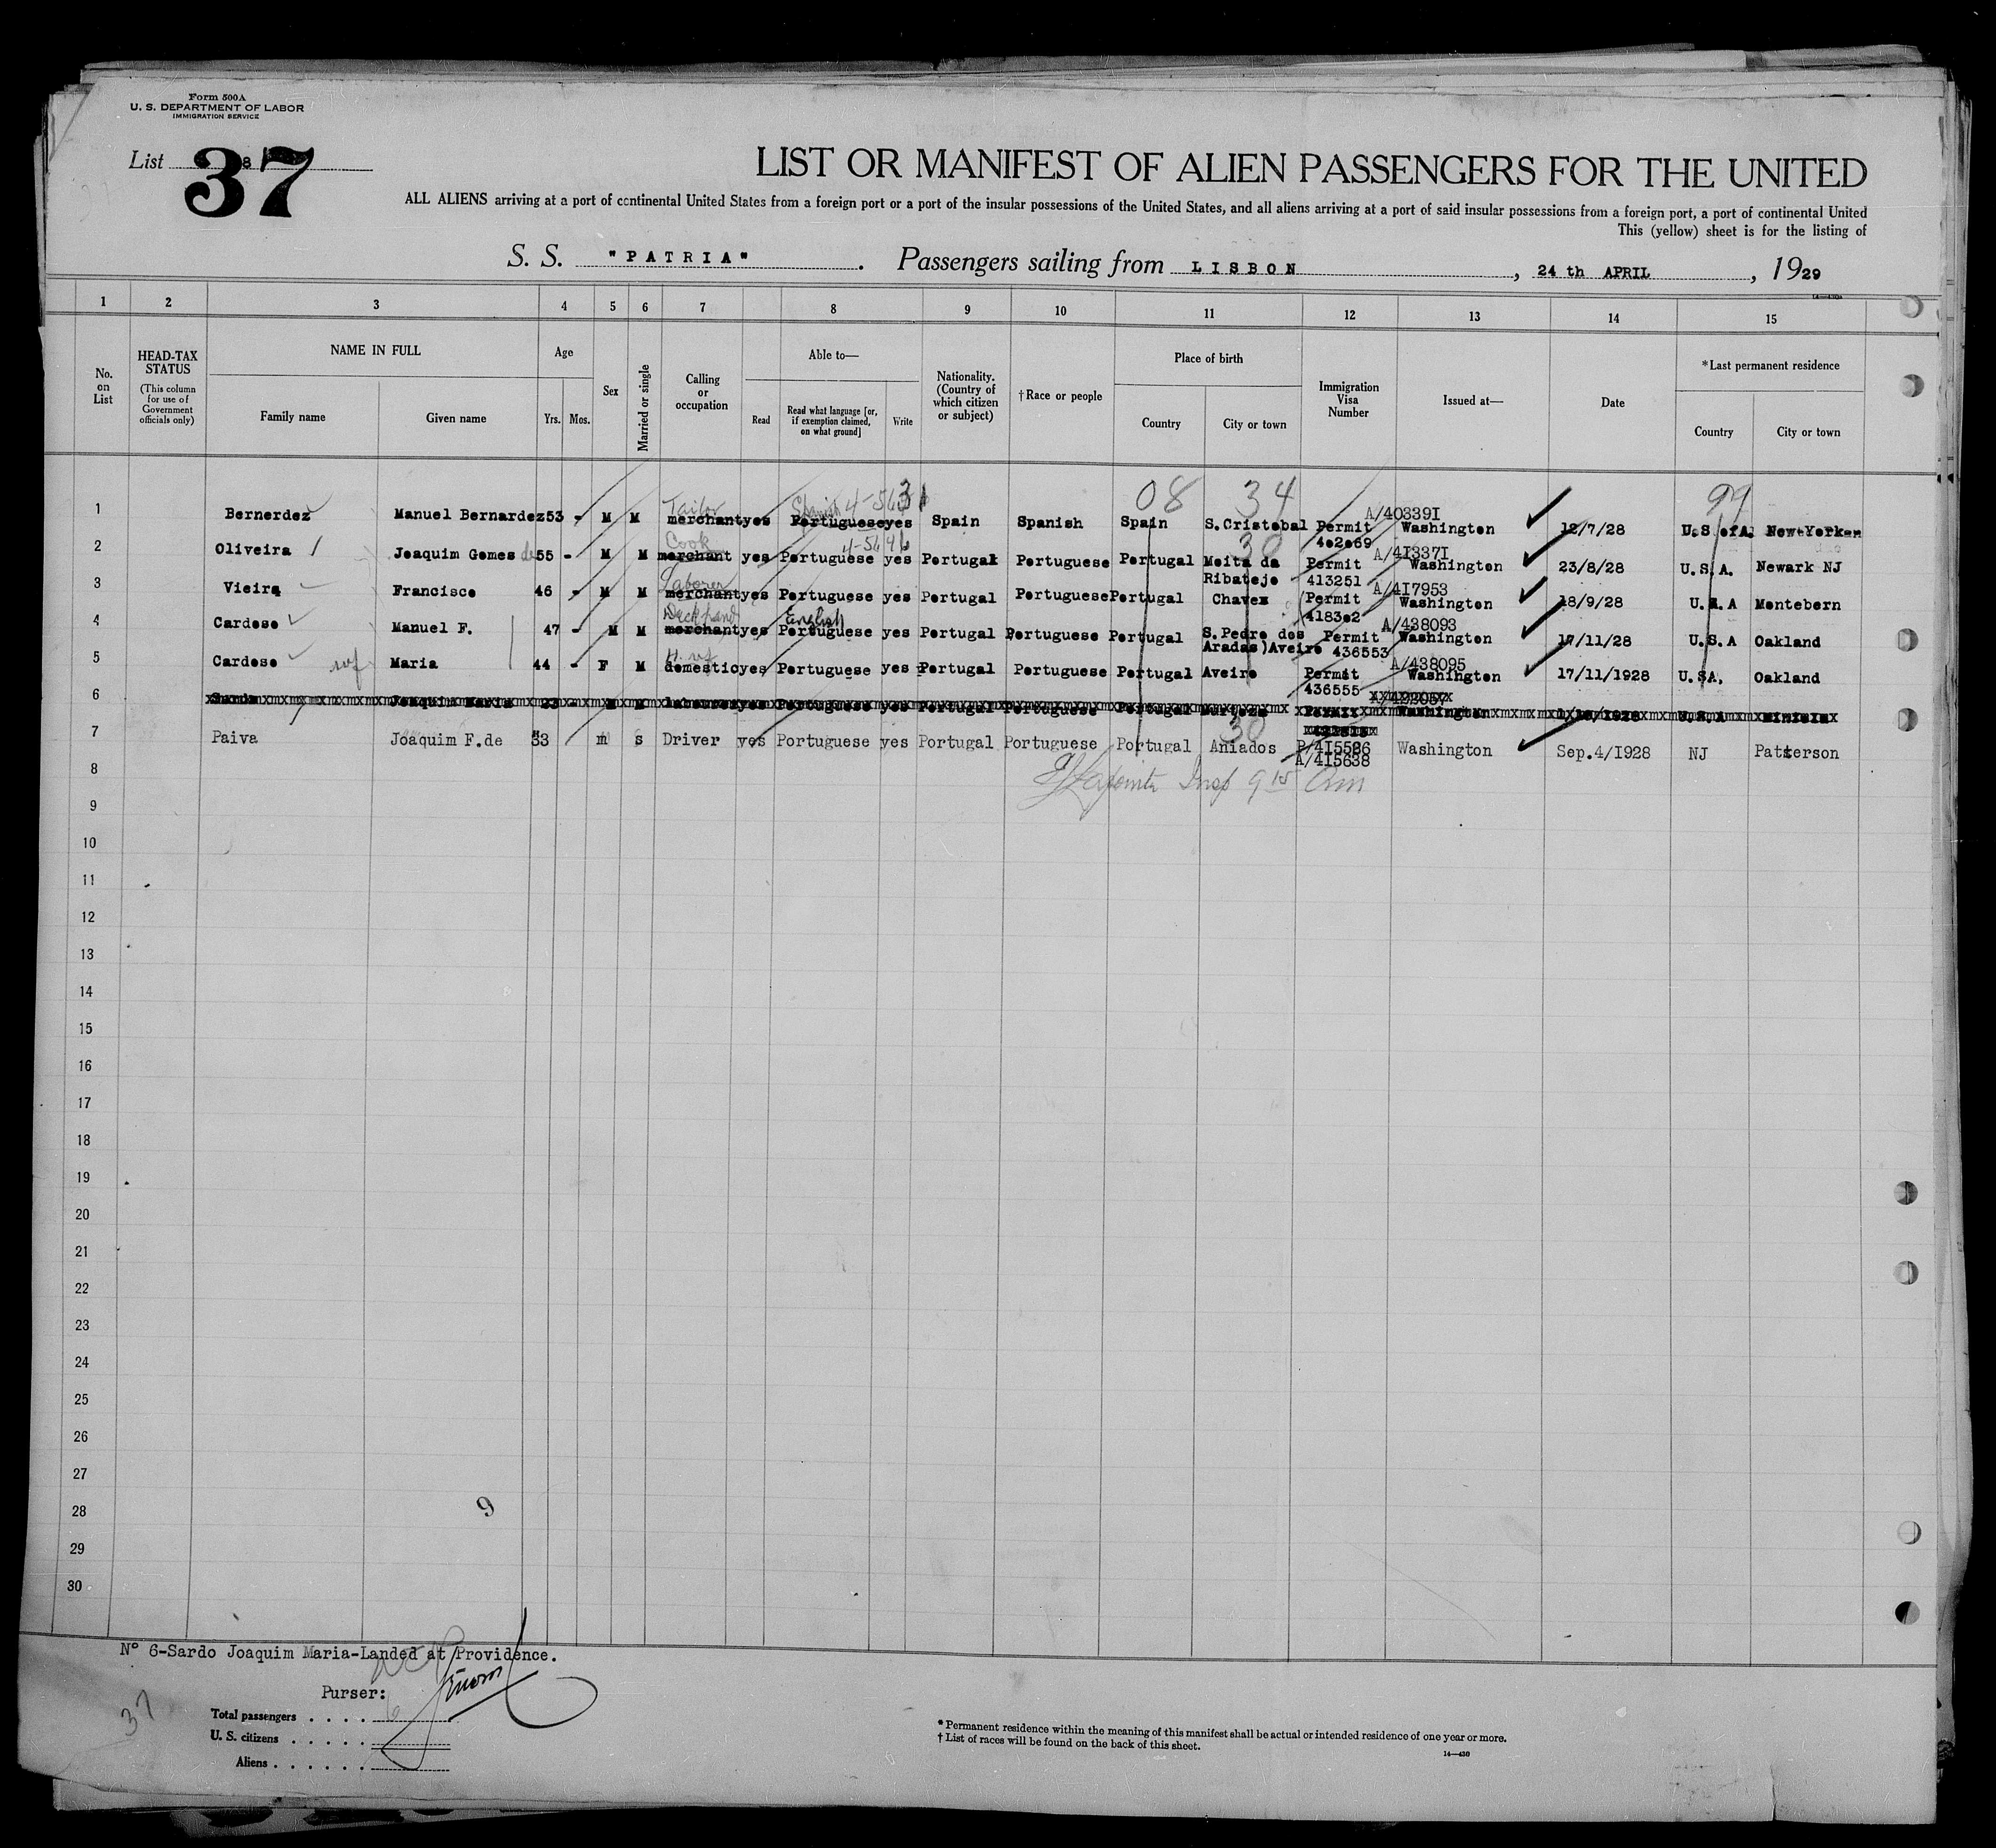 Form 500A
U. S. DEPARTMENT OF LABOR
IMMIGRATION SERVICE
List 8
37
LIST OR MANIFEST OF ALIEN PASSENGERS FOR THE UNITED
ALL ALIENS arriving at a port of continental United States from a foreign port or a port of the insular possessions of the United States, and all aliens arriving at a port of said insular possessions from a foreign port, a port of continental United
This (yellow) sheet is for the listing of
S. S. "PATRIA" . Passengers sailing from LISBON , 24 th APRIL , 1929
1 2 3 4 5 6 7 8 9 10 11 12 13 14 15
No. on List
HEAD-TAX STATUS (This column for use of Government officials only)
NAME IN FULL Family name Given name
Age Yrs. Mos.
Sex
Married or single
Calling or occupation
Able to— Read Read what language [or, if exemption claimed, on what ground] Write
Nationality. (Country of which citizen or subject)
†Race or people
Place of birth Country City or town
Immigration Visa Number
Issued at—
Date
*Last permanent residence Country City or town
08 34 99
Tailor Spanish 4-56 A/40339I
1 Bernerdez Manuel Bernardez 53 - M M merchant yes Portuguese yes Spain Spanish Spain S. Cristobal Permit 4o2o69 Washington 12/7/28 U.S of A. New-Yorken
Cook 30 A/4I337I
2 Oliveira Joaquim Gomes de 55 - M M merchant yes Portuguese yes Portugal Portuguese Portugal Moita da Ribatejo Permit 413251 Washington 23/8/28 U.S.A. Newark NJ
Laborer A/4I7953
3 Vieira Francisco 46 - M M merchant yes Portuguese yes Portugal Portuguese Portugal Chaves Permit 4183o2 Washington 18/9/28 U.S.A Montebern
Deck hand English A/438093
4 Cardoso Manuel F. 47 - M M merchant yes Portuguese yes Portugal Portuguese Portugal S. Pedro dos Aradas)Aveiro Permit 436553 Washington 17/11/28 U.S.A Oakland
H. wf A/438095
5 Cardoso wf Maria 44 - F M domestic yes Portuguese yes Portugal Portuguese Portugal Aveiro Permit 436555 Washington 17/11/1928 U.SA. Oakland
6 Sardo Joaquim Maria 23 - M M laborer yes Portuguese yes Portugal Portuguese Portugal Permit A/422057 Washington 1928 U.S.A
30
7 Paiva Joaquim F.de 33 m s Driver yes Portuguese yes Portugal Portuguese Portugal Aniados P/4I5586 A/4I5638 Washington Sep.4/I928 NJ Patterson
8 Lapointe Insp 9 15 Am
9
10
11
12
13
14
15
16
17
18
19
20
21
22
23
24
25
26
27
28 9
29
30
N° 6-Sardo Joaquim Maria-Landed at Providence.
Purser:
37
Total passengers . . . . 6
U. S. citizens . . . . .
Aliens . . . . . .
* Permanent residence within the meaning of this manifest shall be actual or intended residence of one year or more.
† List of races will be found on the back of this sheet.
14—430